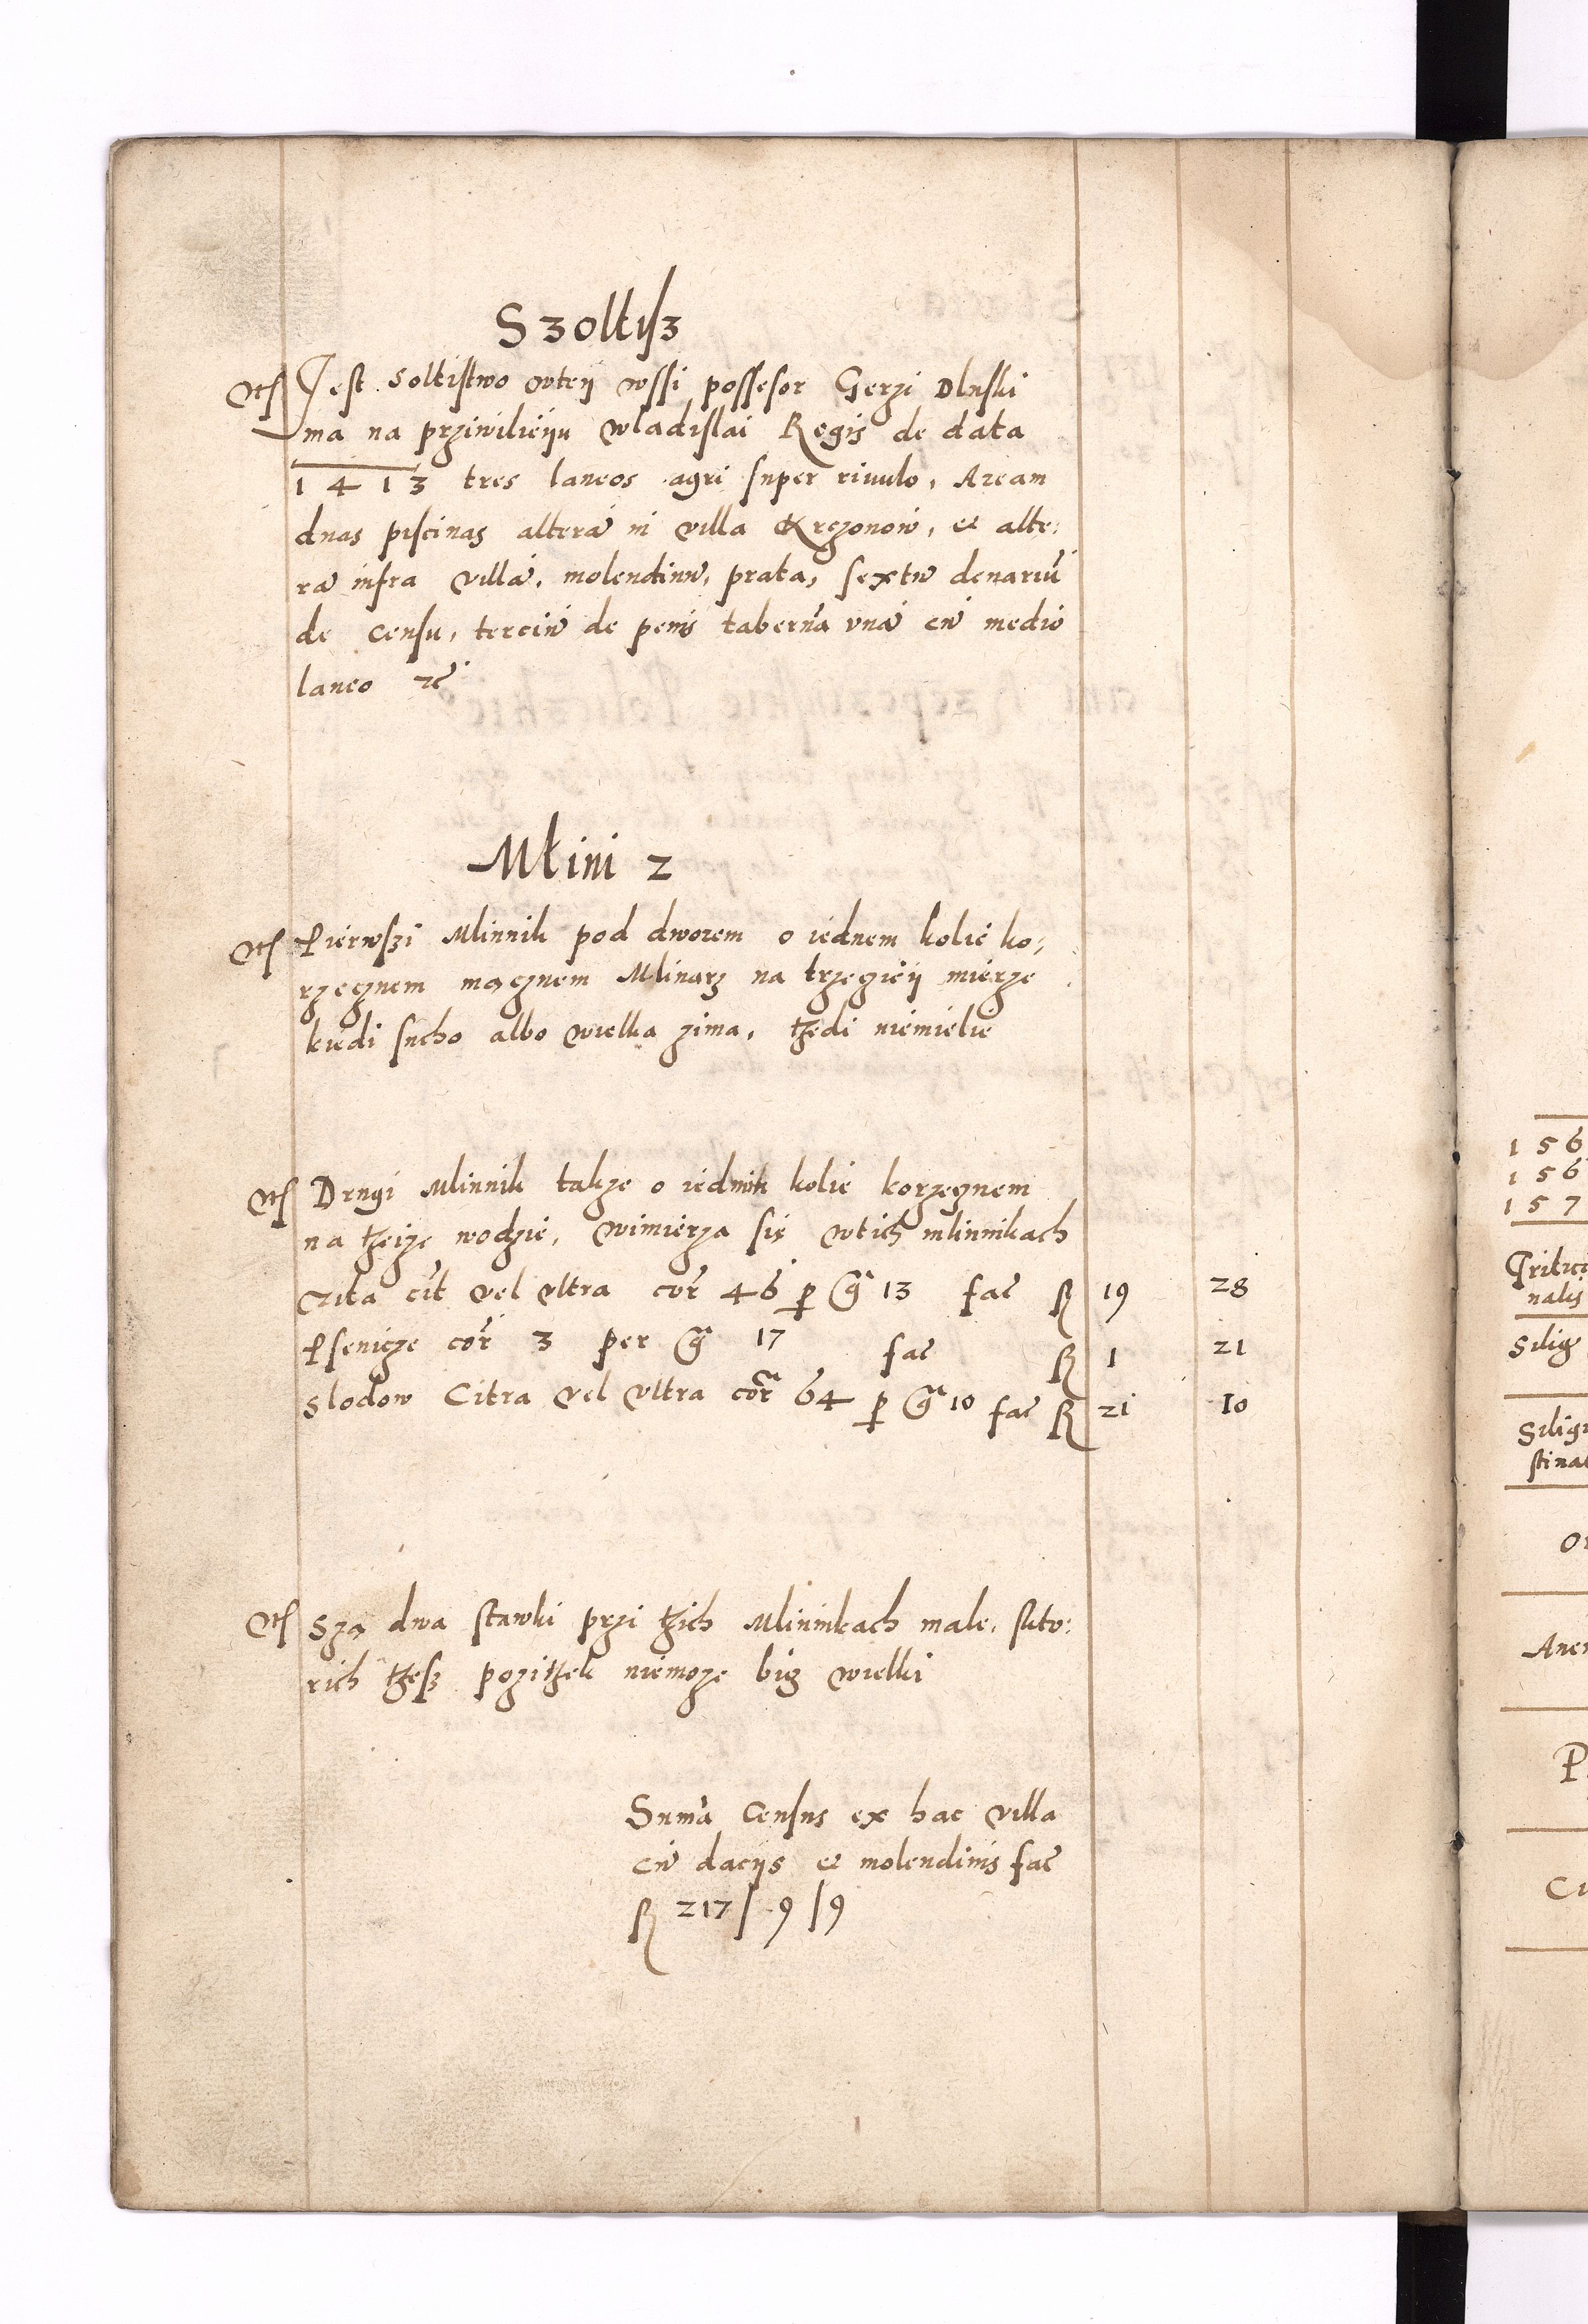 Szoltisz
Jest Soltistwo wteÿ wssi possesor Gerzi Dluski
ma na prziwilieÿu Wladislai Regis de data
1413 tres laneos agri super riuulo, Aream
duas piscinas alterā in villa Krczonow, et alte,
rā infra villā, molendinū, prata, sextū denariū
de censu, terciū de penis tabernā vnā cū medio
laneo
Młini 2
Pierwszi Mlinnik pod dworem o iednem kolie ko,
rzecznem mącznem Mlinarz na trzecieÿ mierze
kiedi sucho albo wielka zima, tedi niemielie
Drugi Mlinnik takze o iednim kolie korzecznem
na teize wodzie, wimierza się wtich mlinnikach
Zita cit vel vltra cor 46 per gr 13 fac R 19 28
Psenicze cor 3 per gr 17 fac R 1 21
Slodow Citra vel vltra cor 64 per gr 10 fac R 21 10
Są dwa stawki przi tich Mlinnikach male, skto,
rich tesz pozitek niemoze bic wielki
Suma Census ex hac villa
cū daciis et molendinis fac
R 217 / 9 / 9
156
156
157
Tritici
nalis
Silig
Silig
stina